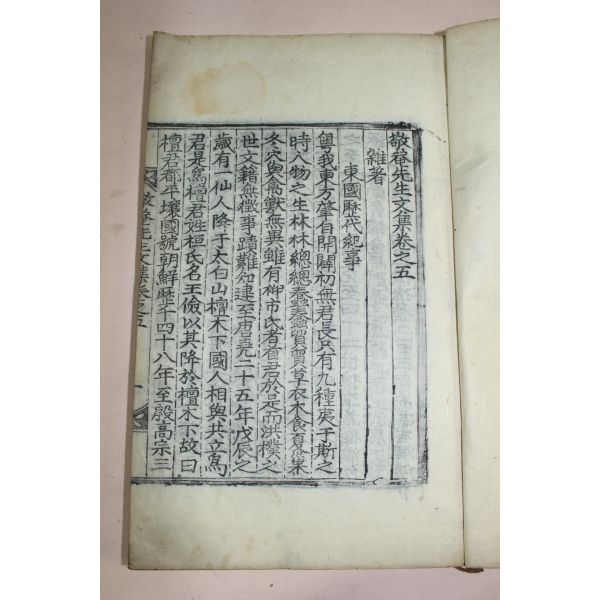 敬菴先生文集卷之五
雜著
東國歷代紀事
粤我東方肇自開闢初無君長只有九種夷于斯之
時人物之生林林總總蠢蠢貿貿草衣木食夏巢
冬穴與禽獸無異雖有神市氏者首君於是而洪樸之
世文籍無徵事蹟難知逮至唐堯二十五年戊辰之
歲有一仙人降于太白山檀木下國人相與共立爲
君是爲檀君姓桓氏名王儉以其降於檀木下故曰
檀君都平壤國號朝鮮歷千四十八年至殷高宗三
敬菴先生文集卷之五